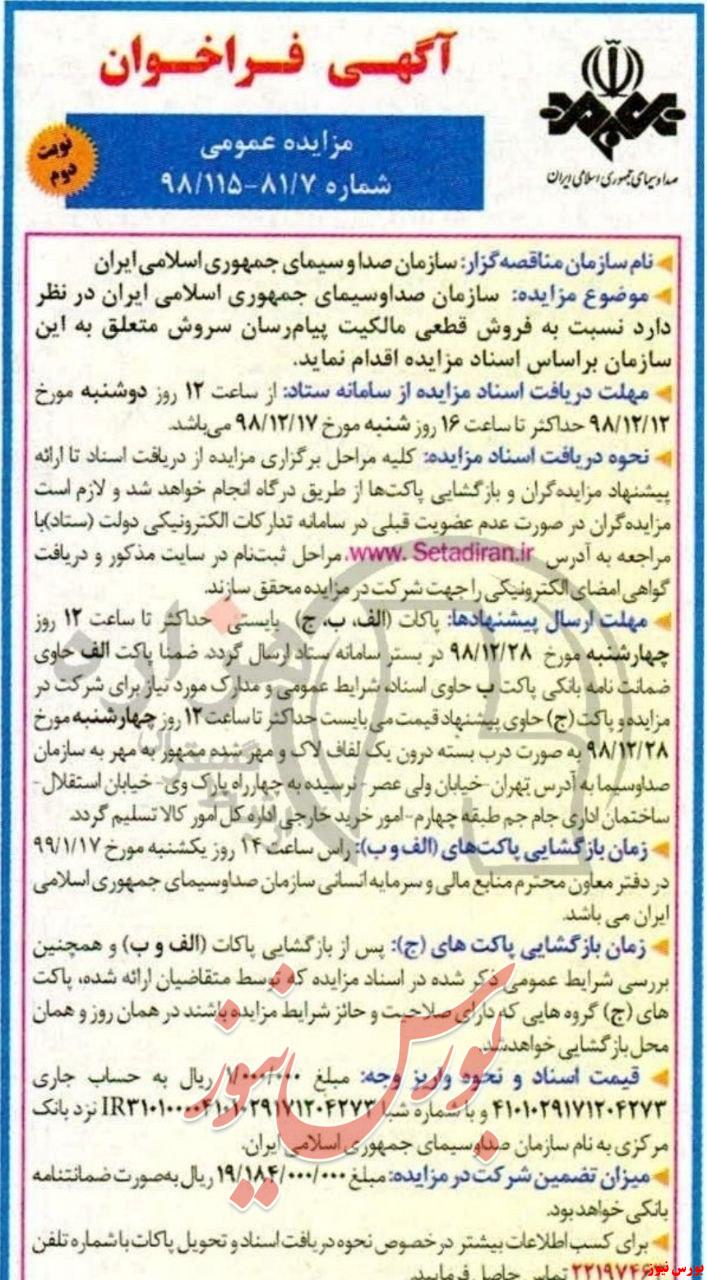 آگهی فراخوان
صدا و سیمای جمهوری اسلامی ایران
مزایده عمومی
شماره ۸۱/۷-۹۸/۱۱۵
نوبت
دوم
نام سازمان مناقصه گزار: سازمان صدا و سیمای جمهوری اسلامی ایران
موضوع مزایده: سازمان صداوسیمای جمهوری اسلامی ایران در نظر
دارد نسبت به فروش قطعی مالکیت پیام‌رسان سروش متعلق به این
سازمان براساس اسناد مزایده اقدام نماید.
مهلت دریافت اسناد مزایده از سامانه ستاد: از ساعت ۱۲ روز دوشنبه مورخ
۹۸/۱۲/۱۲ حداکثر تا ساعت ۱۶ روز شنبه مورخ ۹۸/۱۲/۱۷ می‌باشد.
نحوه دریافت اسناد مزایده: کلیه مراحل برگزاری مزایده از دریافت اسناد تا ارائه
پیشنهاد مزایده‌گران و بازگشایی پاکت‌ها از طریق درگاه انجام خواهد شد و لازم است
مزایده‌گران در صورت عدم عضویت قبلی در سامانه تدارکات الکترونیکی دولت (ستاد)با
مراجعه به آدرس www. Setadiran.ir، مراحل ثبت‌نام در سایت مذکور و دریافت
گواهی امضای الکترونیکی را جهت شرکت در مزایده محقق سازند.
مهلت ارسال پیشنهادها: پاکات (الف، ب، ج) بایستی حداکثر تا ساعت ۱۲ روز
چهارشنبه مورخ ۹۸/۱۲/۲۸ در بستر سامانه ستاد ارسال گردد. ضمنا پاکت الف حاوی
ضمانت نامه بانکی پاکت ب حاوی اسناد، شرایط عمومی و مدارک مورد نیاز برای شرکت در
مزایده و پاکت (ج) حاوی پیشنهاد قیمت می بایست حداکثر تا ساعت ۱۲ روز چهارشنبه مورخ
۹۸/۱۲/۲۸ به صورت درب بسته درون یک لفاف لاک و مهر شده ممهور به مهر به سازمان
صداوسیما به آدرس تهران-خیابان ولی عصر- نرسیده به چهارراه پارک وی- خیابان استقلال-
ساختمان اداری جام جم طبقه چهارم-امور خرید خارجی اداره کل امور کالا تسلیم گردد.
زمان بازگشایی پاکت‌های (الف و ب): راس ساعت ۱۴ روز یکشنبه مورخ ۹۹/۱/۱۷
در دفتر معاون محترم منابع مالی و سرمایه انسانی سازمان صداوسیمای جمهوری اسلامی
ایران می باشد.
زمان بازگشایی پاکت های (ج): پس از بازگشایی پاکات (الف و ب) و همچنین
بررسی شرایط عمومی ذکر شده در اسناد مزایده که توسط متقاضیان ارائه شده، پاکت
های (ج) گروه هایی که دارای صلاحیت و حائز شرایط مزایده باشند در همان روز و همان
محل بازگشایی خواهد شد.
قیمت اسناد و نحوه واریز وجه: مبلغ ۱/۰۰۰/۰۰۰ ریال به حساب جاری
۴۱۰۱۰۲۹۱۷۱۲۰۴۲۷۳ و با شماره شبا IR۳۱۰۱۰۰۰۰۴۱۰۱۰۲۹۱۷۱۲۰۴۲۷۳ نزد بانک
مرکزی به نام سازمان صداوسیمای جمهوری اسلامی ایران.
میزان تضمین شرکت در مزایده: مبلغ ۱۹/۱۸۴/۰۰۰/۰۰۰ ریال به‌صورت ضمانتنامه
بانکی خواهد بود.
برای کسب اطلاعات بیشتر در خصوص نحوه دریافت اسناد و تحویل پاکات با شماره تلفن
تماس حاصل فرمایید.
بورس نیوز
بورس نیوز
هزاره